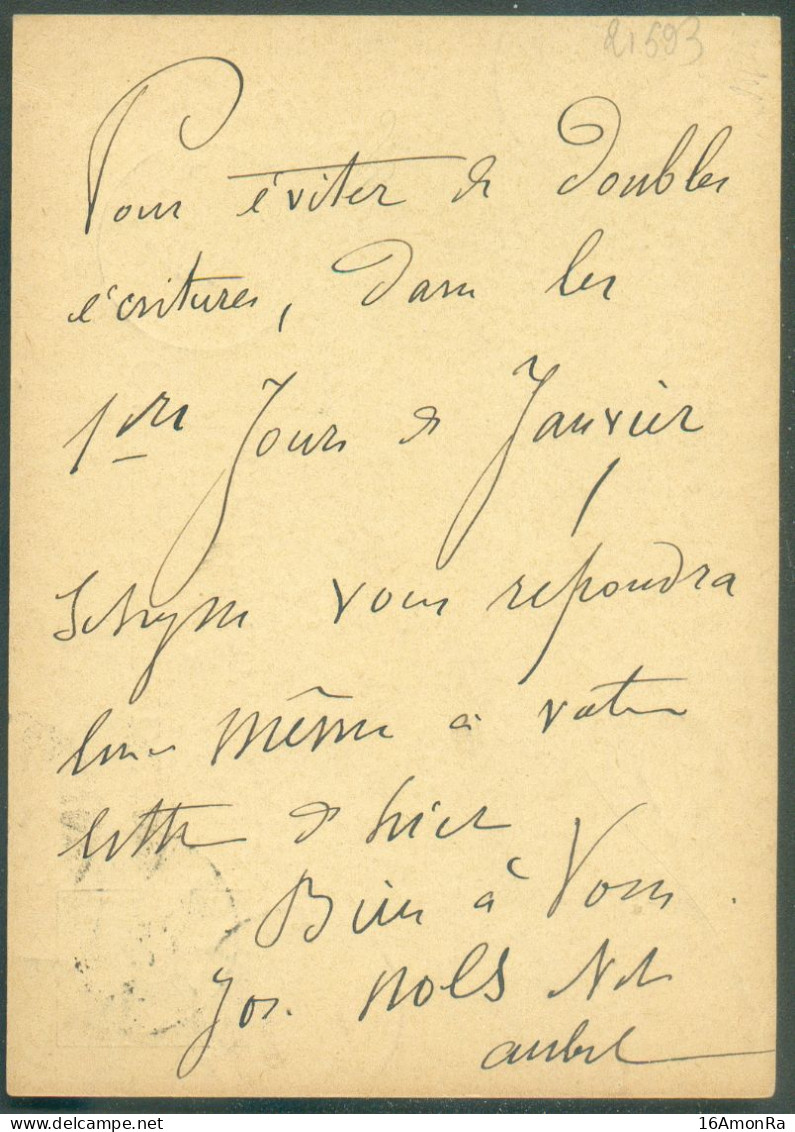 21593
Pour éviter de doubles
écritures, dans les
1ers Jours de Janvier
vous répondra
lui même à votre
lettre d'hier
Bien à Vous.
Jos. Nols Nt
Aubel
16AmonRa